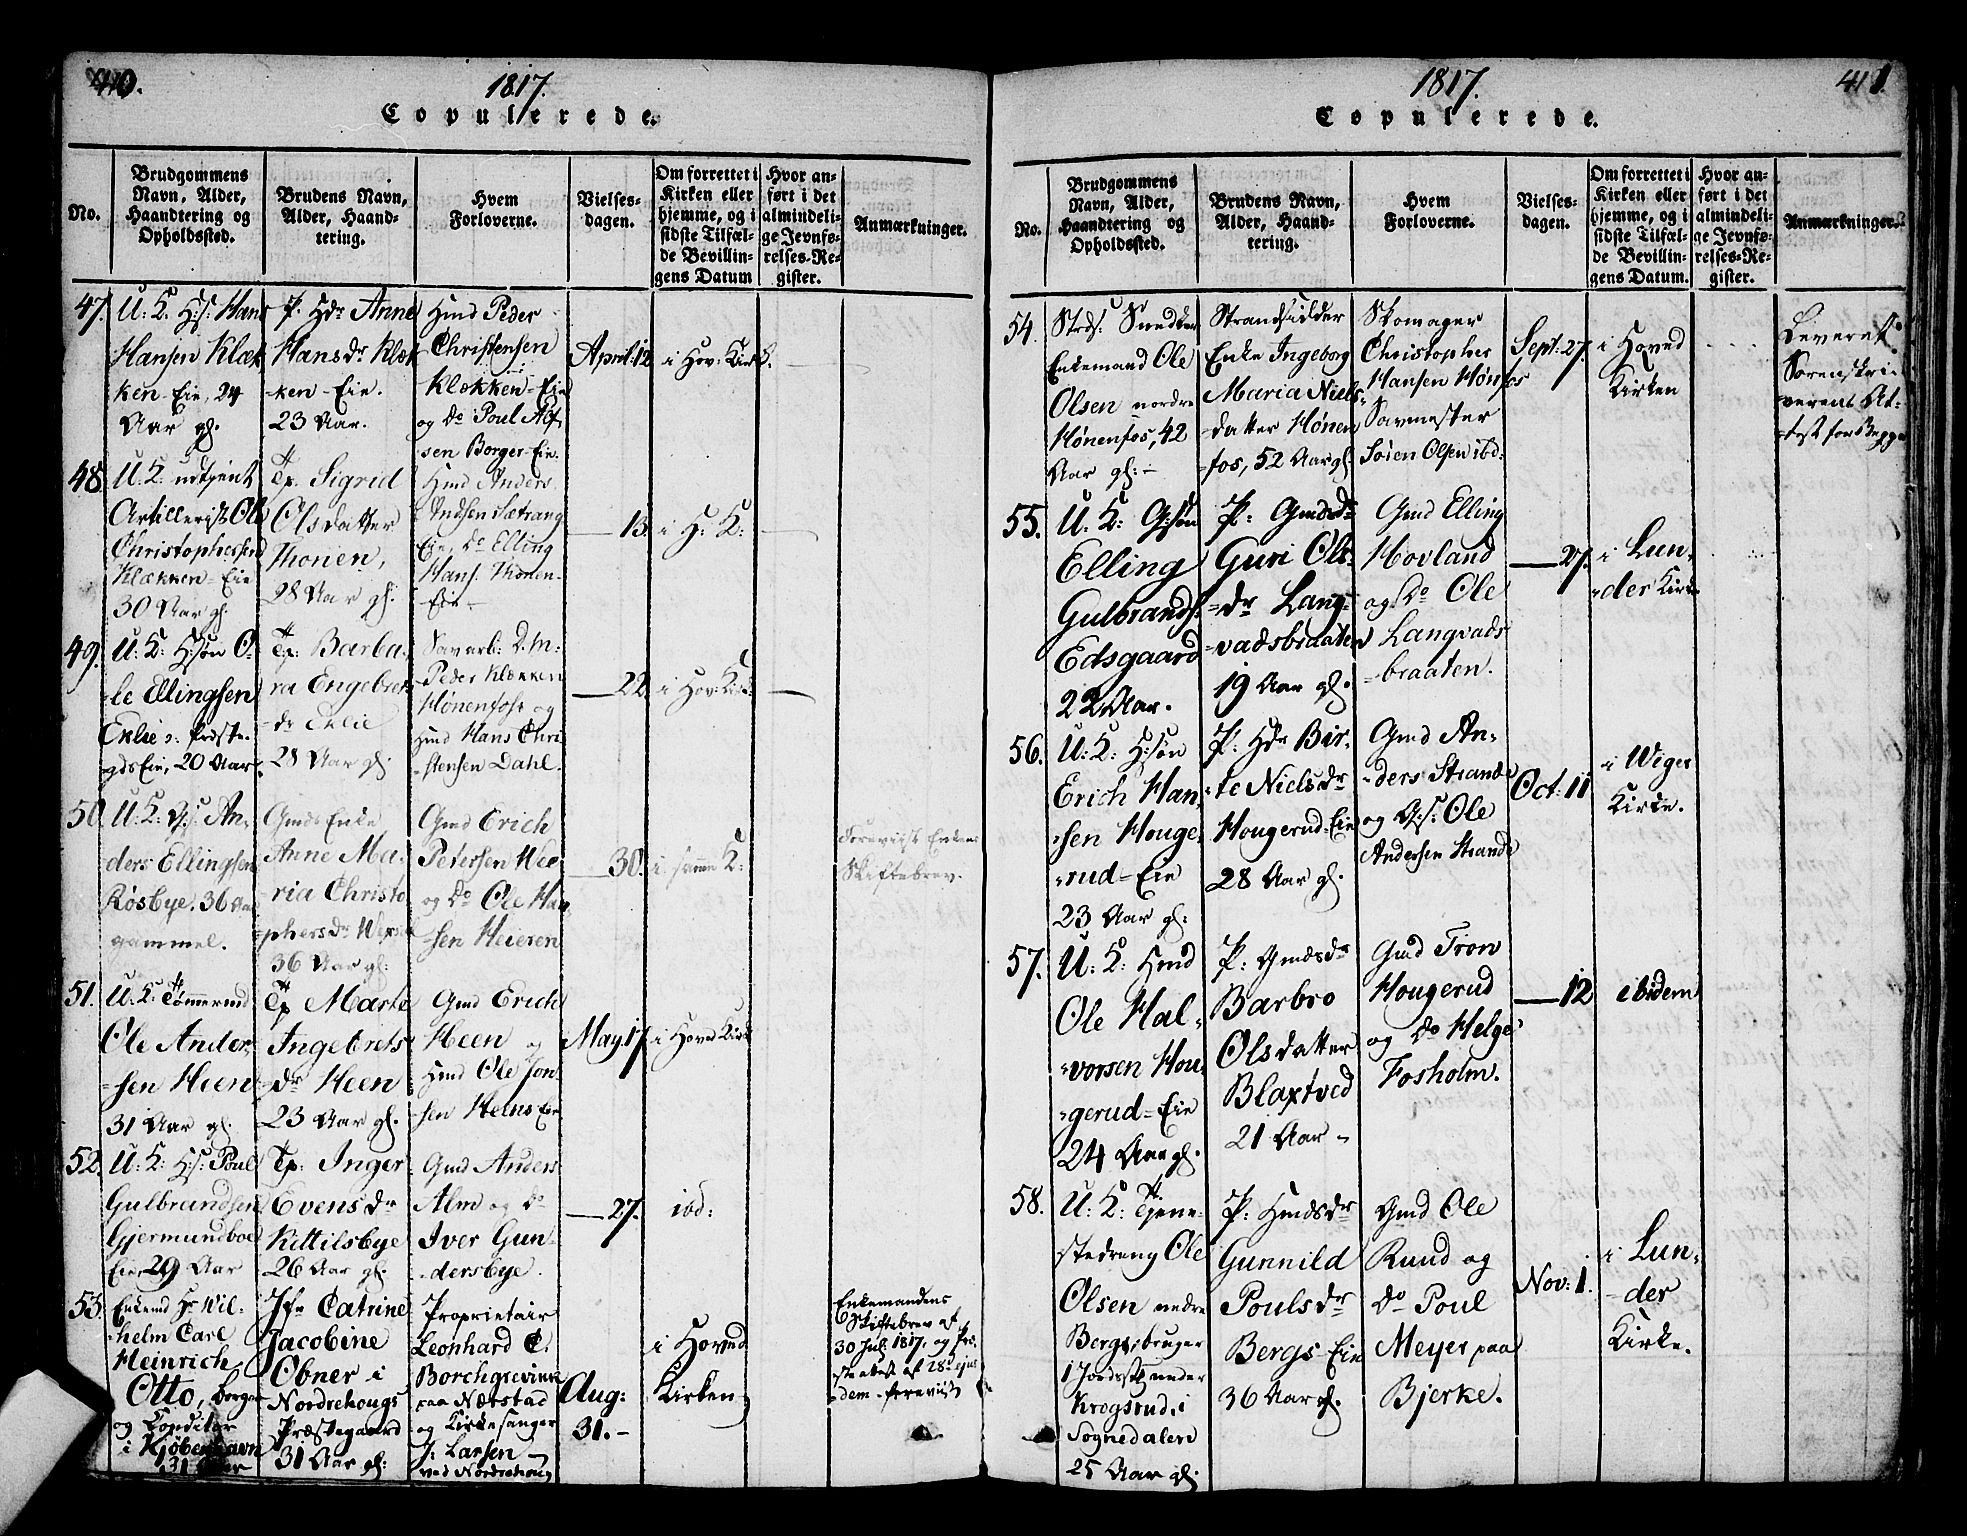 410.
1817.
Copulerede.
No.
Brudgommens
Navn, Alder,
Haandtering og
Opholdssted.
Brudens Navn,
Alder, Haand-
tering.
Hvem
Forloverne.
Vielses-
dagen.
Om forrettet i
Kirken eller
hjemme, og i
sidste Tilfæl-
de Bevillin-
gens Datum
Hvor an-
ført i det
almindeli-
ge Jevnfø-
relses-Re-
gister.
Anmærkninger.
47.
U: K. H:s: Hans
Hansen Klæk
ken-Eie, 24
Aar gl.
P. Hdr Anne
Hansdr Klæk
-ken-Eie.
23 Aar.
Hmd Peder
Christensen
Klækken-Eie
og Do Poul
sen Borger-Eie.
April: 12
i Hov: Kirk.
48.
U: K. udtjent
Artillerist Ole
Christophersen
Klækken-Eie
30 Aar gl.
Tp. Sigrid
Olsdatter
Thonen,
28 Aar gl.
Hmd Anders
Sætrang
Eie, Do Elling
Hans. Thonen-
-Eie-
13.
i H: K:
49.
U: K: H:søn O-
-le Ellingsen
Eklie
gds Eie, 20 Aar.
Tp: Barba-
ra Engebrets
-dr Eklie
28 Aar gl.
Savarb:
Peder Klækken
Hønenfoss og
Hmd Hans Chri
-stensen Dahl.
22.
i Hov: Kirk.
50
U: K: An-
ders Ellingsen
Røsbye. 36 Aar
gammel.
Gmds Enke
Anne Ma-
ria Christo
-phersdr
36 Aar gl:
Gmd Erich
Petersen Hee
og Do Ole Han
-sen Heieren
30.
i samme K:
Foreviist Enkens
Skiftebrev.
51.
U: K. Tømmermd
Ole Ander-
-sen Heen
31 Aar gl.
Tp Marte
Ingebrets
-dr Heen
23 Aar gl.
Gmd Erich
Heen og
Hmd Ole Jon-
-sen Heens Eie
May 17.
i Hoved Kirk
52.
U: K: H:s: Poul
Gulbrandsen
Gjermundboe
Eie, 29 Aar
Tp: Inger
Evensdr
Kittilsbye
26 Aar gl.
Gmd Anders
Alm og Do
Iver Gun-
-dersbye.
27.
ibd:
53.
Enkemd Hr Wil-
-helm Carl
Heinrich
Otto, borger
og Conditor
i Kjøbenhavn
31 Aar
Jfr Catrine
Jacobine
Obner i
Nordrehougs
Præstegaard
31 Aar gl:
Proprietair
Leonhard C.
Borchgrevink
paa Næstad
og Kirkesanger
J: Larsen
ved Nordrehoug
Aug:
31.-
i Hoved
Kirken
Enkemandens
Skiftebrev af
30 July 1817, og
af 28d
-dem foreviist
1817.
411.
Copulerede.
No.
Brudgommens
Navn, Alder,
Haandtering og
Opholdssted.
Brudens Navn,
Alder, Haand-
tering.
Hvem
Forloverne.
Vielses-
dagen.
Om forrettet i
Kirken eller
hjemme, og i
sidste Tilfæl-
de Bevillin-
gens Datum.
Hvor an-
ført i det
almindeli-
ge Jevnfø-
relses-Re-
gister.
Anmærkninger.
54.
Snedker
Enkemand Ole
Olsen nordre
Hønenfos, 42
Aar gl:-
Strandsidder
Enke Ingeborg
Maria Niels-
-datter Hønen
-fos, 52 Aar gl.
Skomager
Christopher
Hansen Hønfos
Savmester
Søren Olsen ibd:
Sept: 27.
i Hoved
Kirken
Leveret
Sorenskri-
-verens At-
-test for Begge
55.
U: K: G:søn
Elling
Gulbrands.
Edsgaard
22 Aar.
P: Gmdsdr
Guri Ols-
-dr Lang-
-vadsbraaten
19 Aar gl.
Gmd Elling
Hovland
og Do Ole
Langvads-
-braaten.
27.
i Lun-
-der Kirke
56.
U: K: H:søn
Erich Han-
-sen Houge-
-rud-Eie
23 Aar gl:
P: Hdr Bir-
-te Nielsdr
Hougerud-Eie
28 Aar gl.
Gmd An-
-ders Strande
og G:s: Ole
Andersen Strande
Oct: 11
i Wiger
Kirke.
57.
U: K: Hmd
Ole Hal-
-vorsen Hou
-gerud-Eie
24 Aar gl.
P: Gmdsdr
Barbro
Olsdatter
Blaxtved
21 Aar-
Gmd Tron
Hougerud
og Do Helge
Fosholm.
12
ibidem
58.
U: K: Tjene-
stedreng Ole
Olsen nedre
Berg, bruger
under
Krogsrud, i
Sognedalen
25 Aar gl.
P: Hmdsdr
Gunnild
Poulsdr
Bergs-Eie
36 Aar gl.
Gmd Ole
Ruud og
Do Poul
Meyer paa
Bjerke.
Nov: 1.
i Lun-
-der
Kirke.